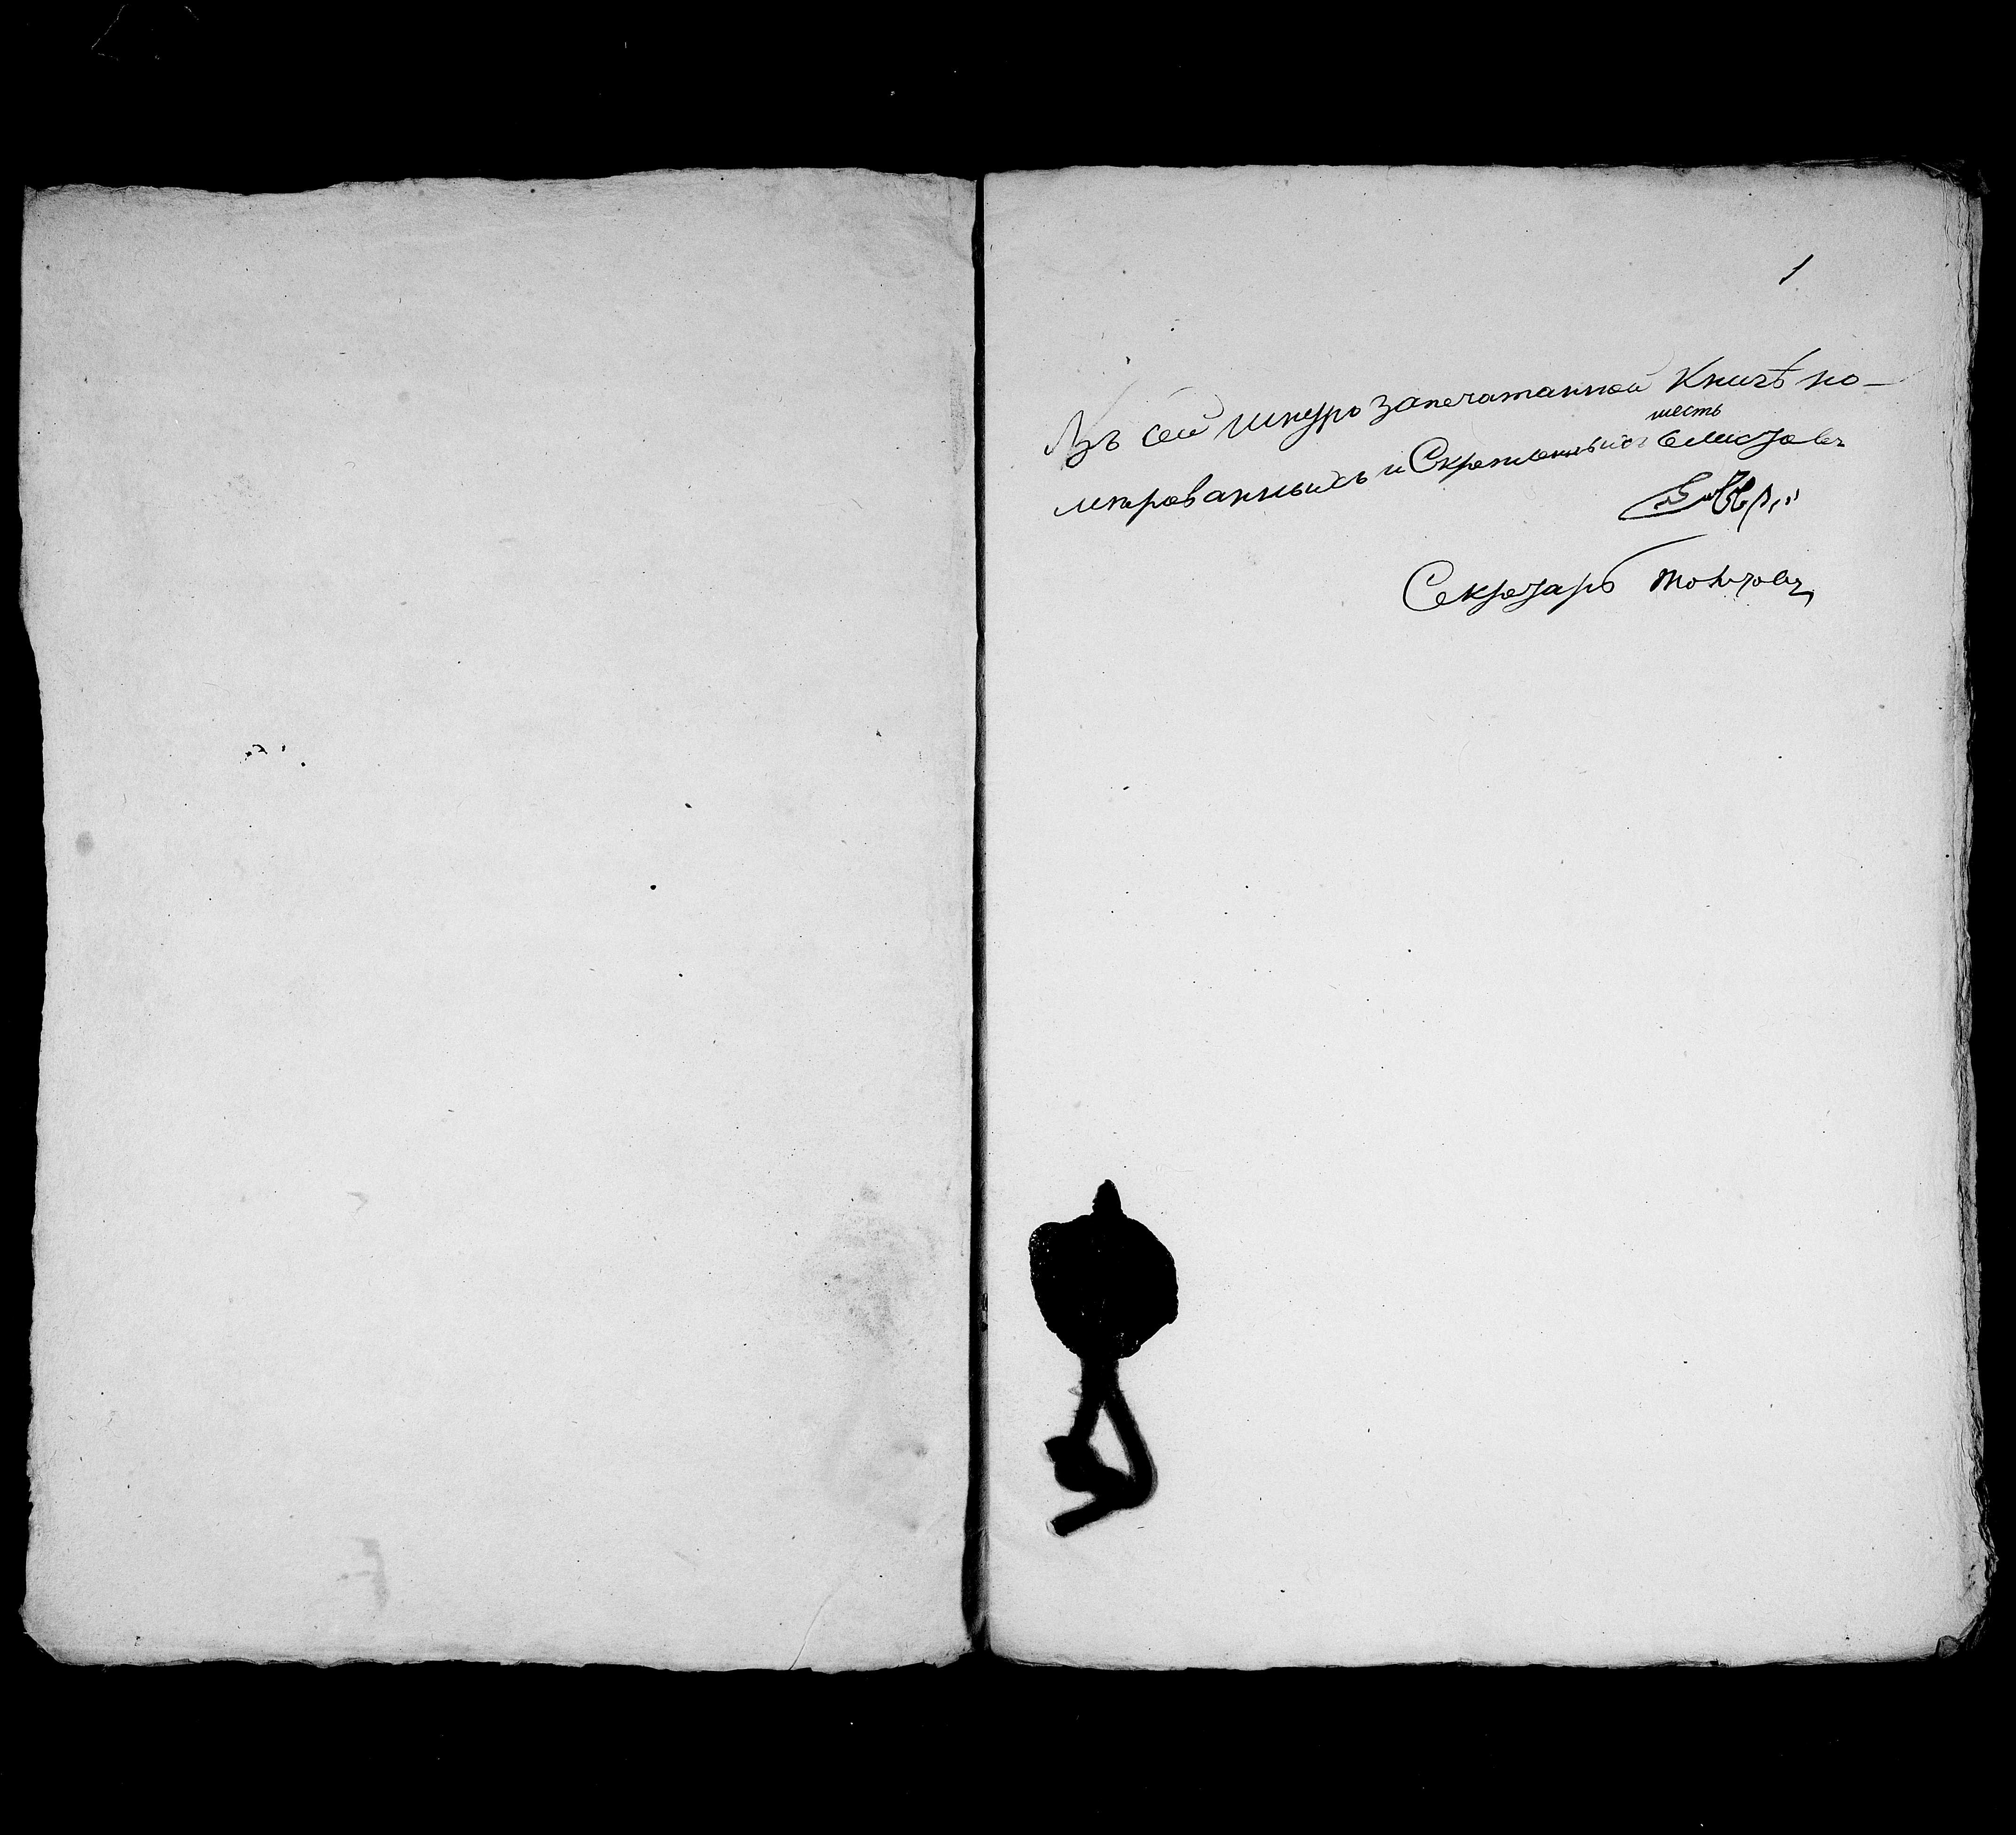 1
Въ сей шнурозапечатанной Книгѣ но-
мированныхъ и Скрепленныхъ шесть листовъ
Секретарь